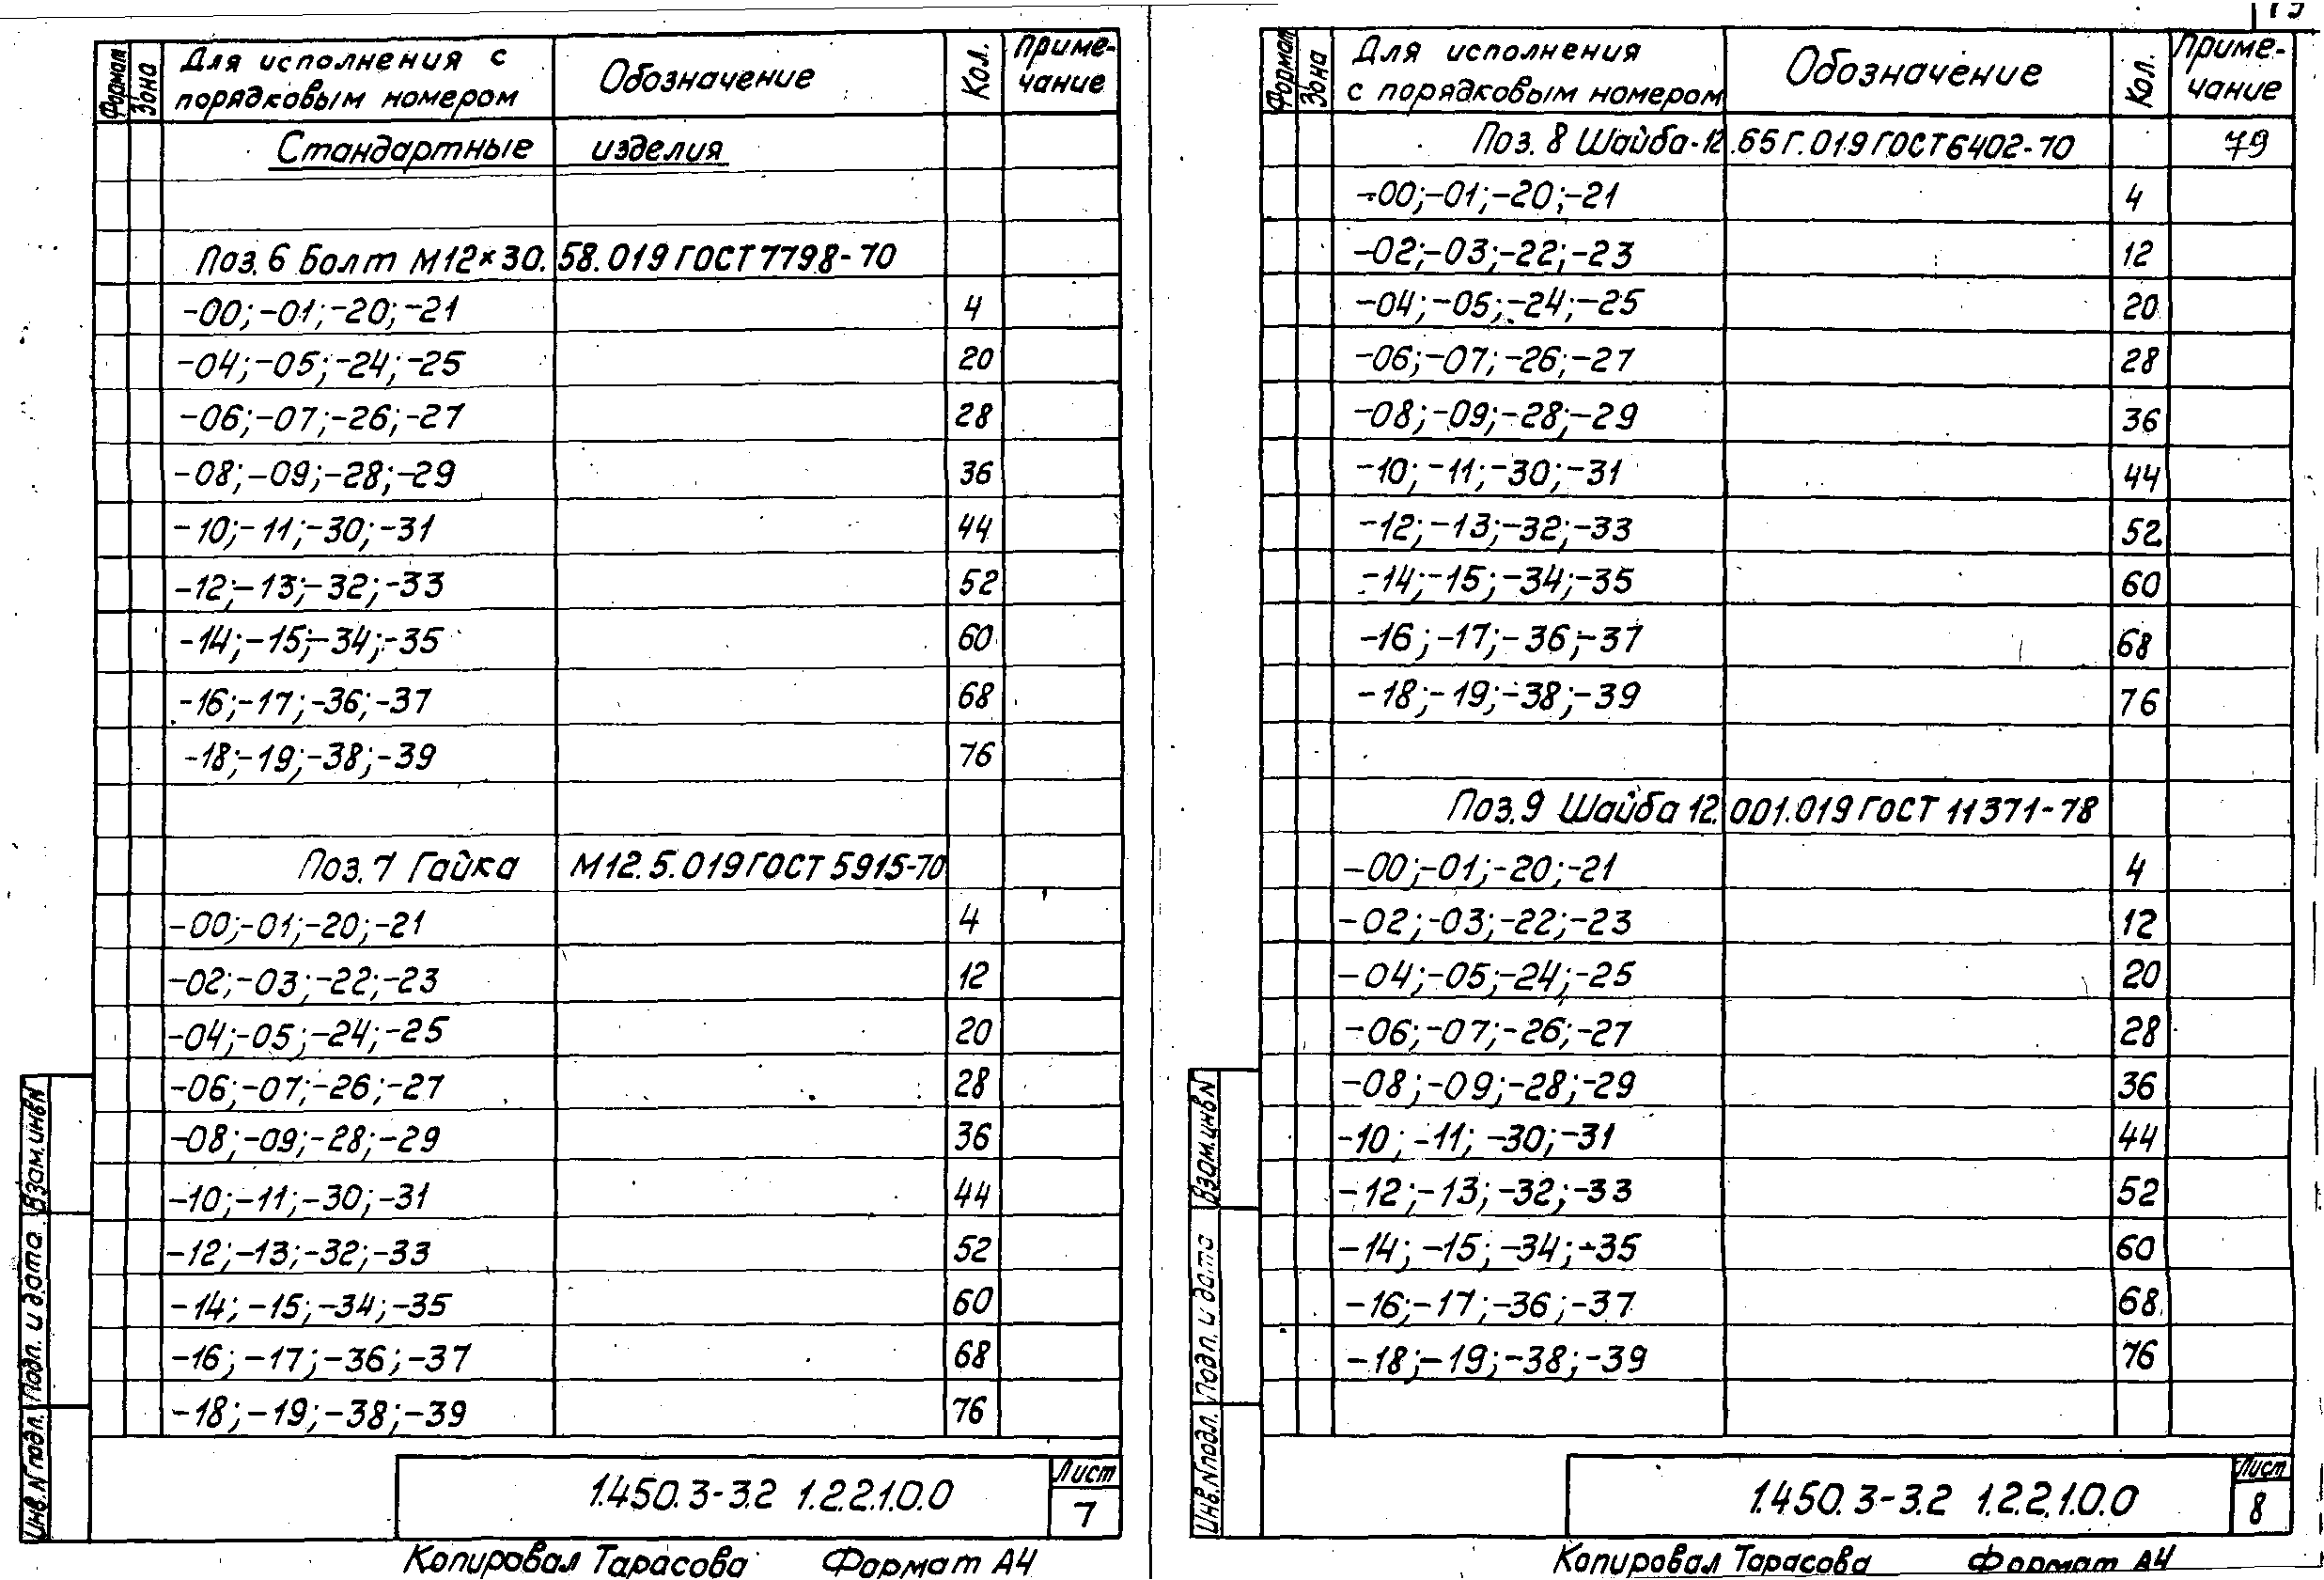 Формат
Зона
Для исполнения с порядковым номером
Обозначение
Кол.
Приме-
чание
Стандартные изделия
Поз. 6 Болт М12×30.58.019 ГОСТ 7798-70
-00;-01;-20;-21 4
-04;-05;-24;-25 20
-06;-07;-26;-27 28
-08;-09;-28;-29 36
-10;-11;-30;-31 44
-12;-13;-32;-33 52
-14;-15;-34;-35 60
-16;-17;-36;-37 68
-18;-19;-38;-39 76
Поз. 7 Гайка М12.5.019 ГОСТ 5915-70
-00;-01;-20;-21 4
-02;-03;-22;-23 12
-04;-05;-24;-25 20
-06;-07;-26;-27 28
-08;-09;-28;-29 36
-10;-11;-30;-31 44
-12;-13;-32;-33 52
-14;-15;-34;-35 60
-16;-17;-36;-37 68
-18;-19;-38;-39 76
Взам.инв№
Подп. и дата
Инв.№подл.
1.450.3-3.2 1.2.2.1.0.0
Лист
7
Копировал Тарасова Формат А4
Формат
Зона
Для исполнения
с порядковым номером
Обозначение
Кол.
Приме-
чание
Поз. 8 Шайба-12.65Г.019 ГОСТ 6402-70 79
-00;-01;-20;-21 4
-02;-03;-22;-23 12
-04;-05;-24;-25 20
-06;-07;-26;-27 28
-08;-09;-28;-29 36
-10;-11;-30;-31 44
-12;-13;-32;-33 52
-14;-15;-34;-35 60
-16;-17;-36;-37 68
-18;-19;-38;-39 76
Поз.9 Шайба 12.001.019 ГОСТ 11371-78
-00;-01;-20;-21 4
-02;-03;-22;-23 12
-04;-05;-24;-25 20
-06;-07;-26;-27 28
-08;-09;-28;-29 36
-10;-11;-30;-31 44
-12;-13;-32;-33 52
-14;-15;-34;-35 60
-16;-17;-36;-37 68
-18;-19;-38;-39 76
Взам.инв№
Подп. и дата
Инв.№подл.
1.450.3-3.2 1.2.2.1.0.0
Лист
8
Копировал Тарасова Формат А4